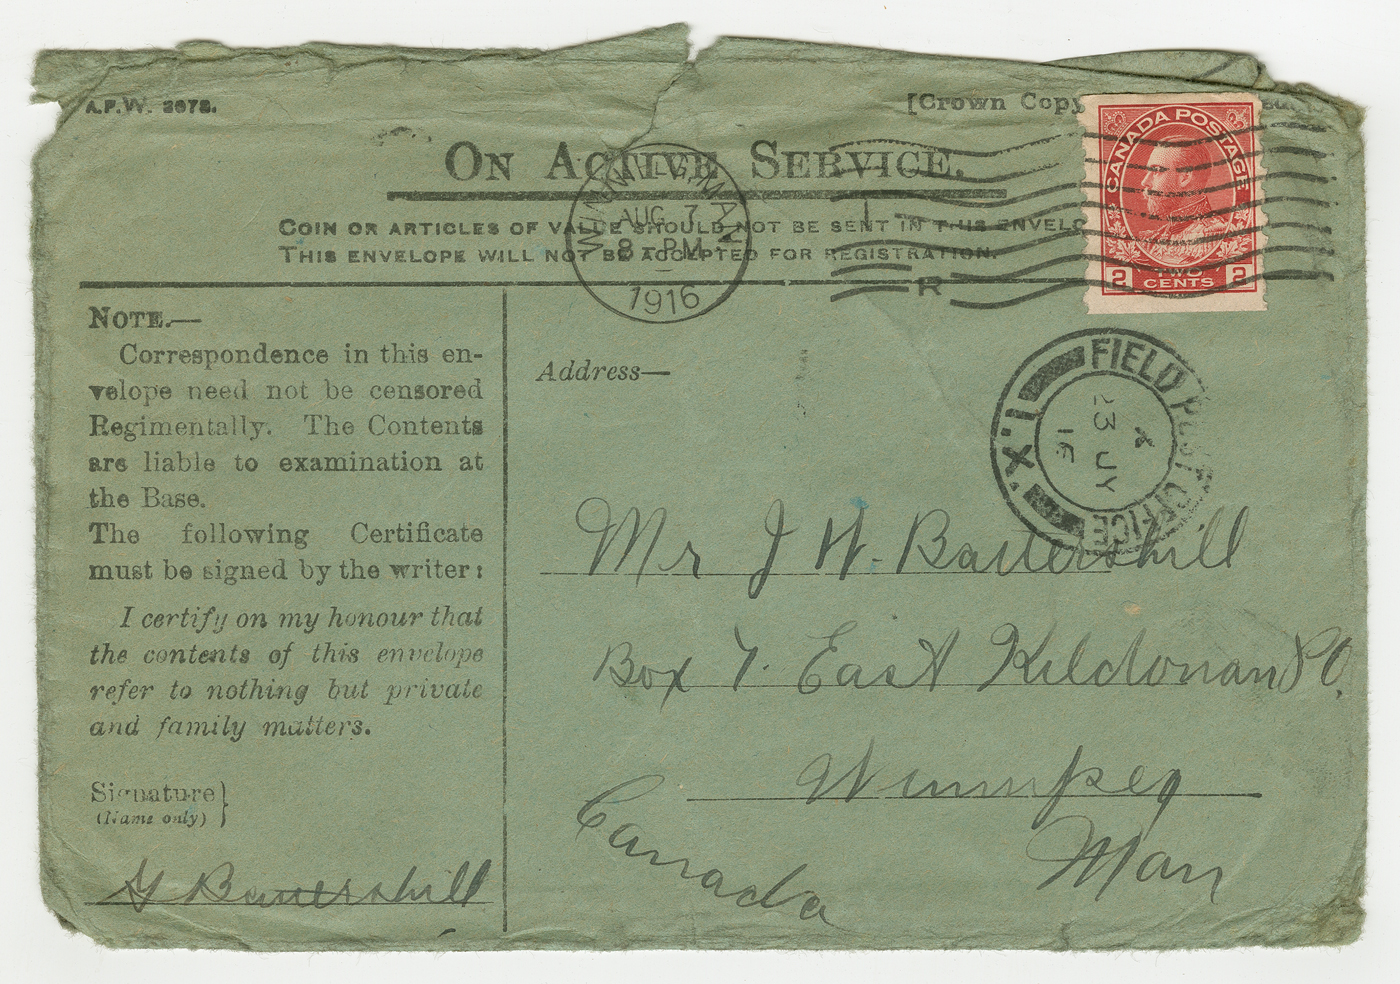 A.F.W. 3078.
[Crown Copy
ON ACTIVE SERVICE.
COIN OR ARTICLES OF VALUE SHOULD NOT BE SENT IN THIS ENVELO
THIS ENVELOPE WILL NOT BE ACCEPTED FOR REGISTRATION.
WINNIPEG, MAN
AUG 7
8 PM
1916
R
CANADA POSTAGE
2 TWO CENTS 2
FIELD POST OFFICE
X
23 JY
16
NOTE.—
Correspondence in this en-
velope need not be censored
Regimentally. The Contents
are liable to examination at
the Base.
The following Certificate
must be signed by the writer:
I certify on my honour that
the contents of this envelope
refer to nothing but private
and family matters.
Signature}
(Name only)
G Battershill
Address—
Mr J W. Battershill
Box 7. East Kildonan P O.
Winnipeg
Man
Canada